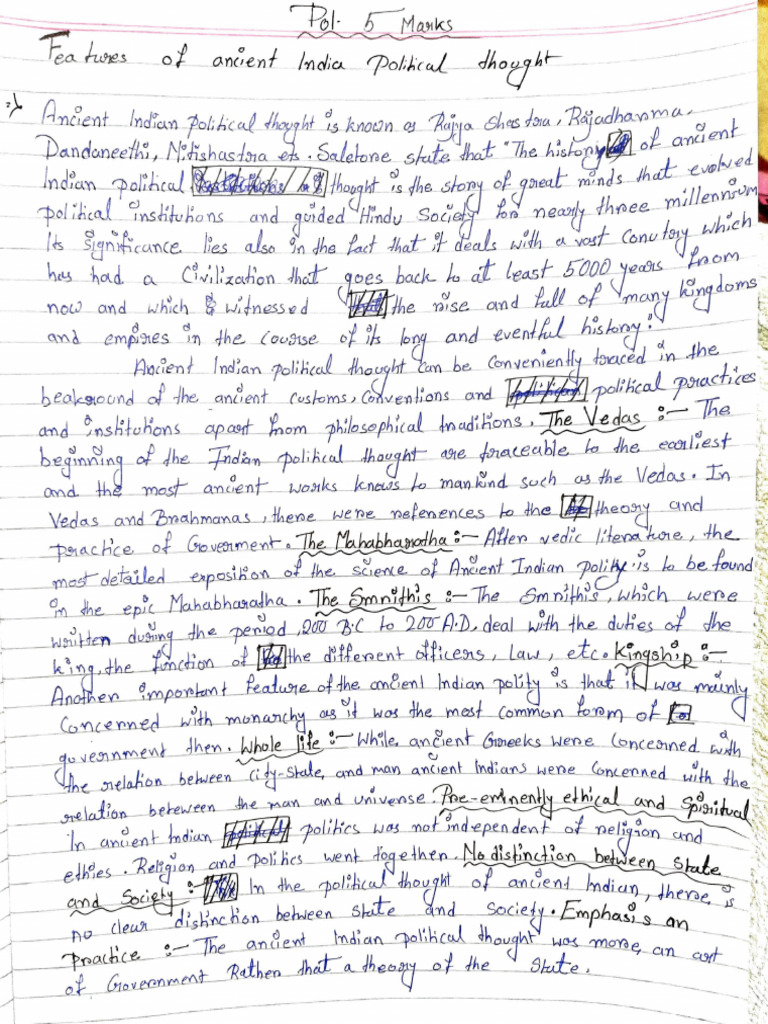 Pol. 5 Marks
Features of ancient India political thought
Ancient Indian political thought is known as Rajya shastra, Rajadharma,
Dandaneethi, Nitishastra ets. Saletore state that "The history of ancient
Indian political thought is the story of great minds that evolved
political institutions and guided Hindu Society for nearly three millennium
Its significance lies also in the fact that it deals with a vast Conutory which
has had a Civilization that goes back to at least 5000 years from
now and which witnessed the rise and fall of many kingdoms
and empires in the course of its long and eventful history."
Ancient Indian political thought can be conveniently traced in the
beakground of the ancient customs, conventions and political practices
and institutions apart from philosophical traditions. The Vedas :- The
beginning of the Indian political thought are traceable to the earliest
and the most ancient works knows to mankind such as the Vedas. In
Vedas and Brahmanas, there were references to the theory and
practice of Goverment. The Mahabharadha :- After vedic literature, the
most detailed exposition of the science of Ancient Indian polity is to be found
in the epic Mahabharadha. The Smrithis :- The Smrithis, which were
written during the period, 200 B.C to 200 A.D, deal with the duties of the
king, the function of the different officers, law, etc. Kingship :-
Another important feature of the ancient Indian polity is that it was mainly
Concerned with monarchy as it was the most common form of
government then. Whole life :- While ancient Greeks were Concerned with
the relation between city-state, and man ancient Indians were Concerned with the
relation beteween the man and universe. Pre-eminently ethical and Spiritual
In ancient Indian politics was not independent of religion and
ethies. Religion and politics went together. No distinction between State
and Society :- In the political thought of ancient Indian, there is
no clear distinction between state and society. Emphasis on
Practice :- The ancient Indian political thought was more, an art
of Government Rather that a theory of the State.